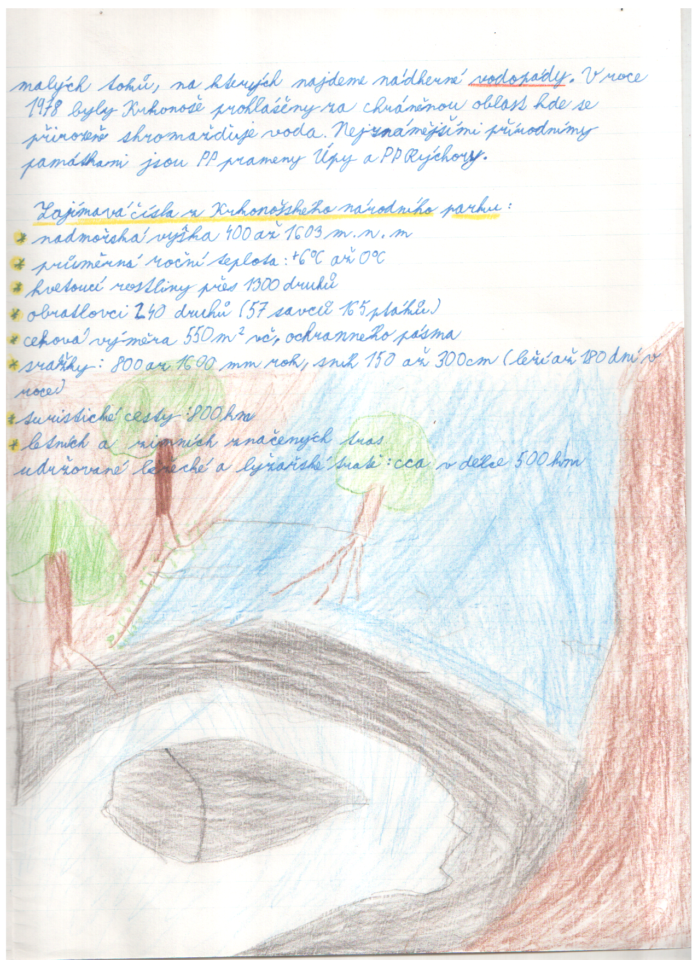 malých toků, na kterých najdeme nádherné vodopády. V roce
1978 byly Krkonoše prohlášeny za chráněnou oblast kde se
přirozeně shromažďuje voda. Nejznámějšími přírodnímy
památkami jsou PP prameny Úpy a PP Rýchory.
Zajímavá čísla z Krkonošského národního parku:
* nadmořská výška 400 až 1603 m.n.m
* průměrná roční teplota: +6°C až 0°C
* kvetoucí rostliny přes 1300 druhů
* obratlovci 240 druhů (57 savců 165 ptáků)
* ceková výměra 550 m² vč. ochranného pásma
* srážky: 800 až 1690 mm rok, sníh 150 až 300cm (leží až 180 dní v
roce)
* turistické cesty: 800 km
* letních a zimních značených tras
udržované běžecké a lyžařské tratě: cca v délce 500 km